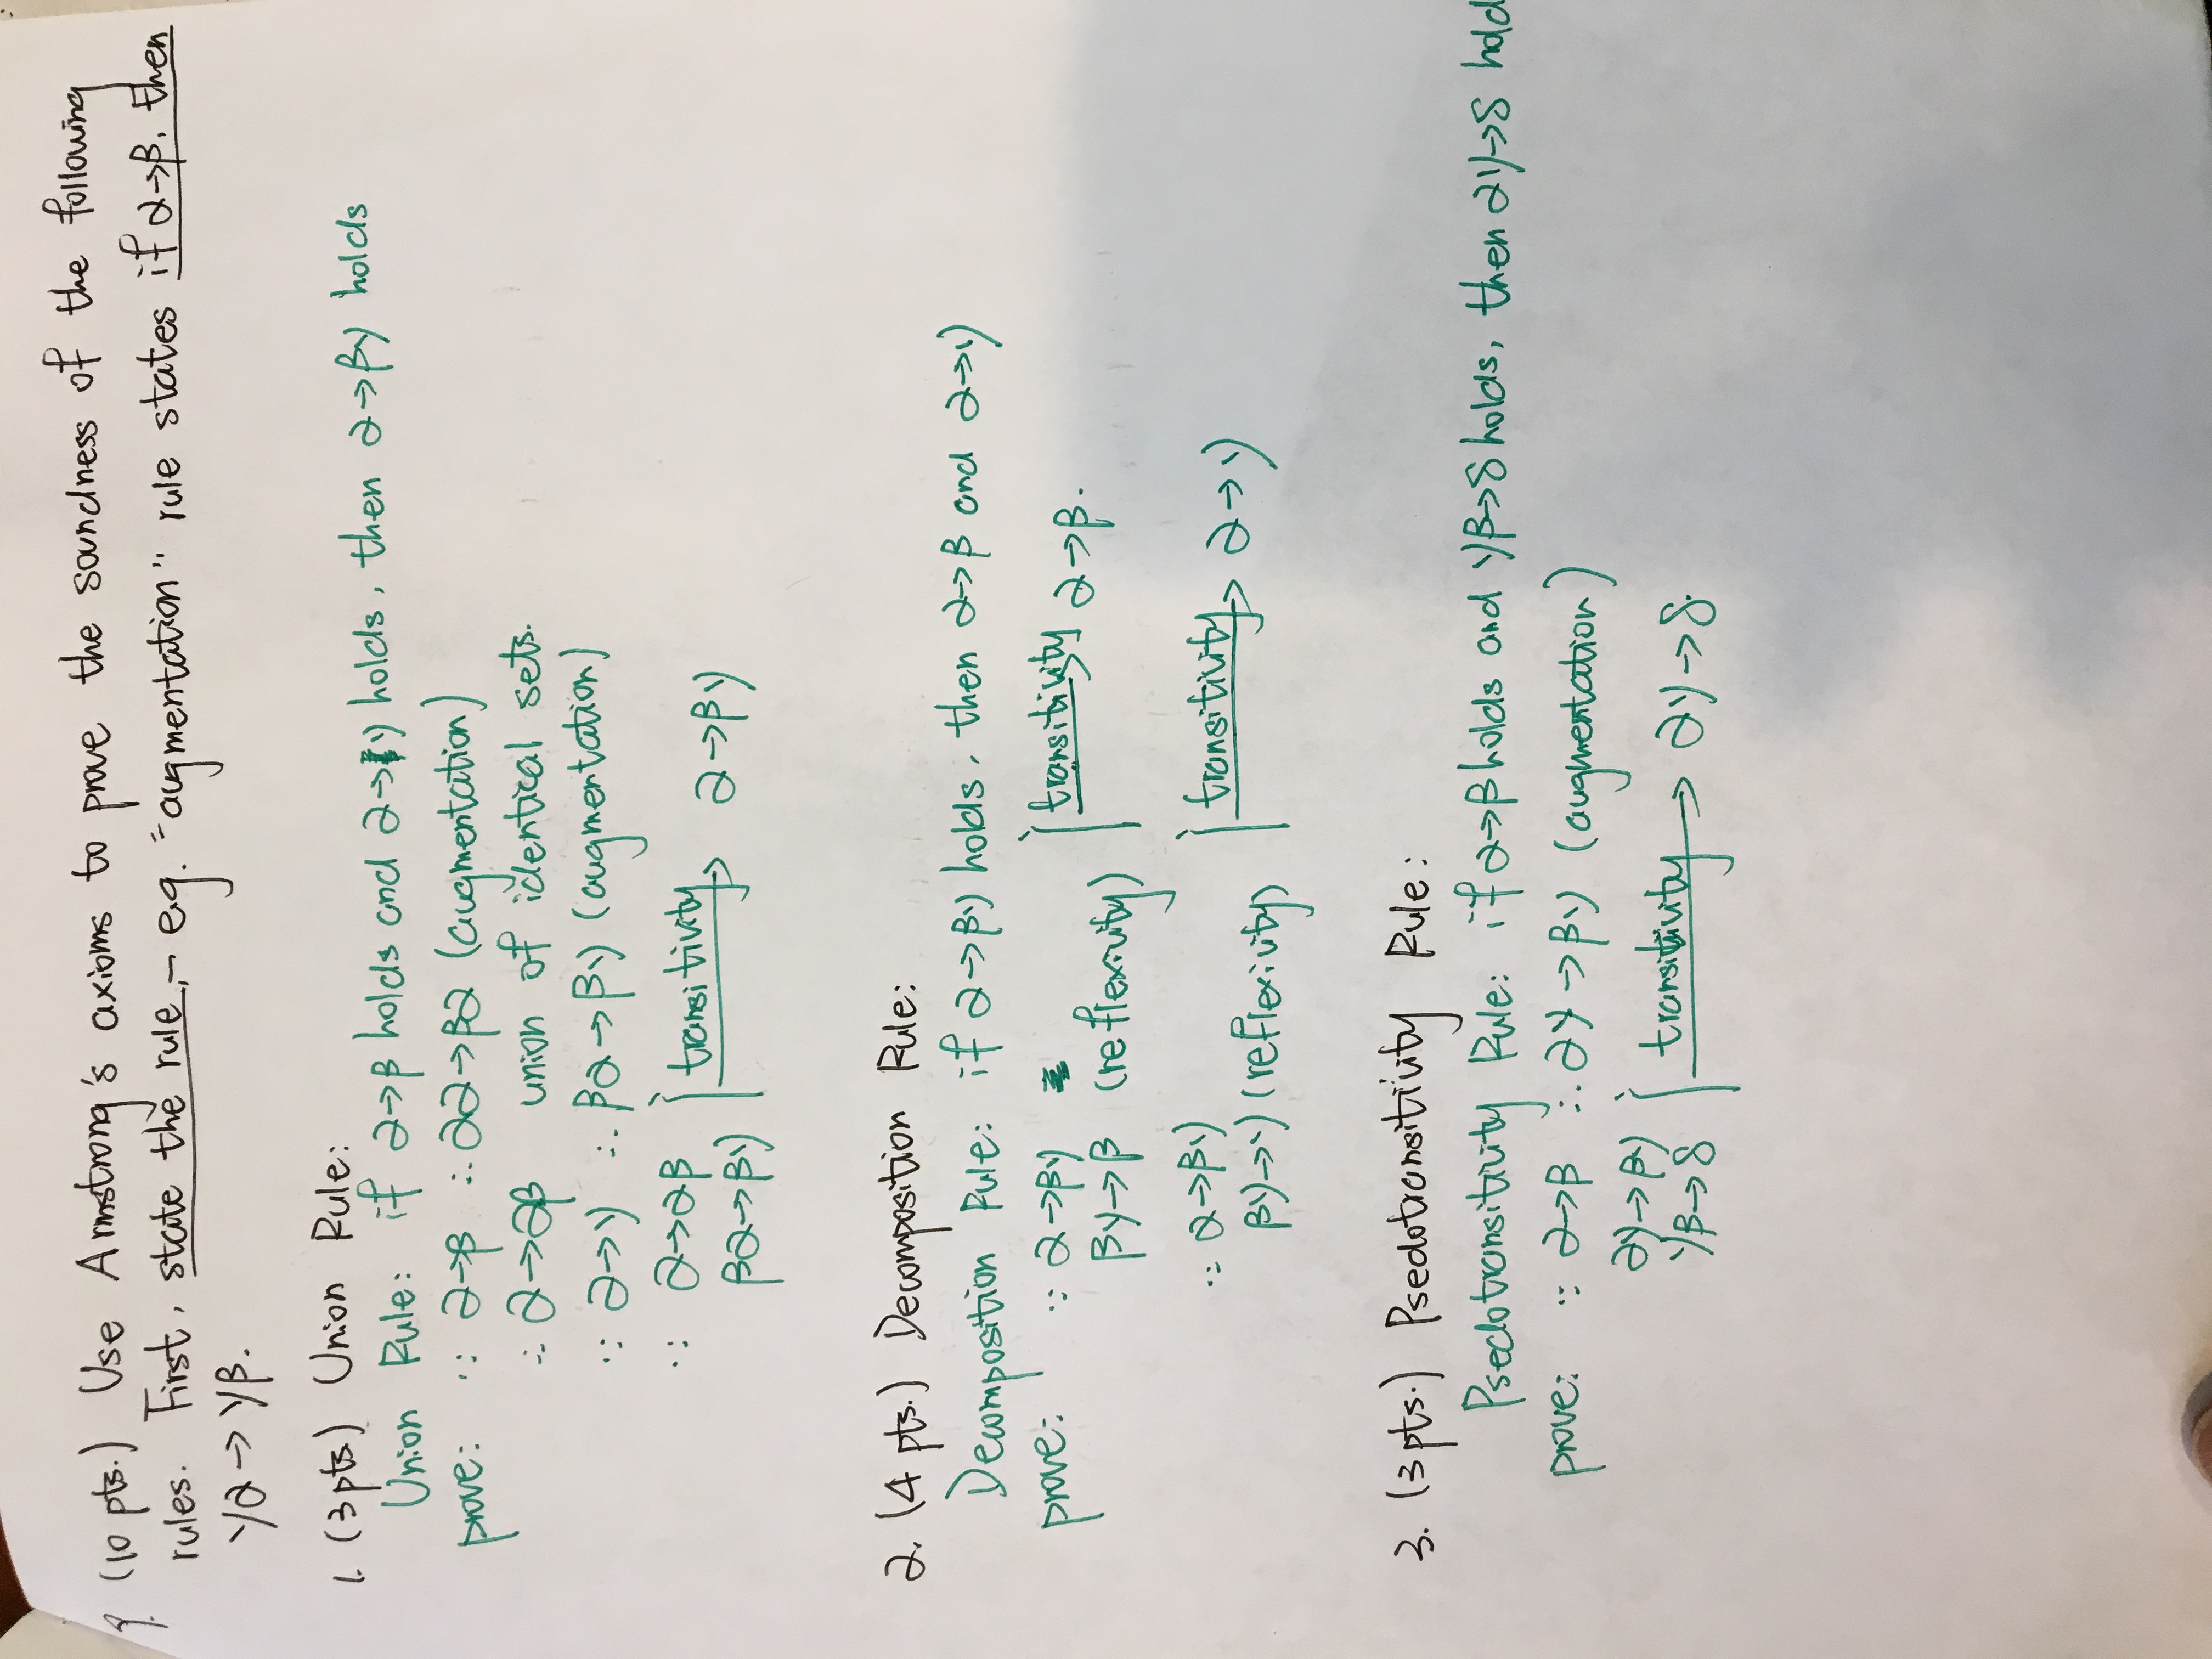 9. (10 pts.) Use Armstrong's axioms to prove the soundness of the following
rules. First, state the rule, - e.g. "augmentation" rule states if α→β, then
γα→γβ.
1. (3pts) Union Rule:
Union Rule: if α→β holds and α→γ holds, then α→βγ holds
prove: ∵ α→β ∴ αα→βα (augmentation)
∴ α→αβ union of identical sets.
∵ α→γ ∴ βα→βγ (augmentation)
∵ α→αβ
βα→βγ transitivity α→βγ
2. (4 pts.) Decomposition Rule:
Decomposition Rule: if α→βγ holds, then α→β and α→γ
prove: ∵ α→βγ
βγ→β (reflexivity) transitivity α→β.
∵ α→βγ
βγ→γ (reflexivity) transitivity α→γ
3. (3pts.) Psedotransitivity Rule:
Psedotransitivity Rule: if α→β holds and γβ→δ holds, then αγ→δ hold
prove: ∵ α→β ∴ αγ→βγ (augmentation)
αγ→βγ
γβ→δ transitivity αγ→δ.